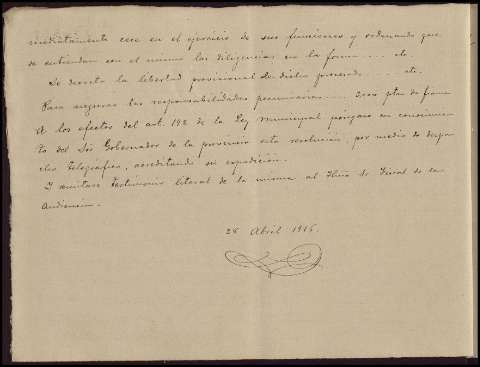 mediatamente cese en el ejercicio de sus funciones y ordenando que
se entiendan con el mismo las diligencias en la forma .... etc.
Se decreta la libertad provisional de dicho procesado .... etc.
Para asegurar las responsabilidades pecuniarias .... ptas de fianza
A los efectos del art. 192 de la Ley Municipal póngase en conocimien-
to del Sr. Gobernador de la provincia esta resolución, por medio de despa-
cho telegráfico, acreditando su expedición.
Y remítase testimonio literal de la misma al Ilmo Sr Fiscal de la
Audiencia.
28 Abril 1916.